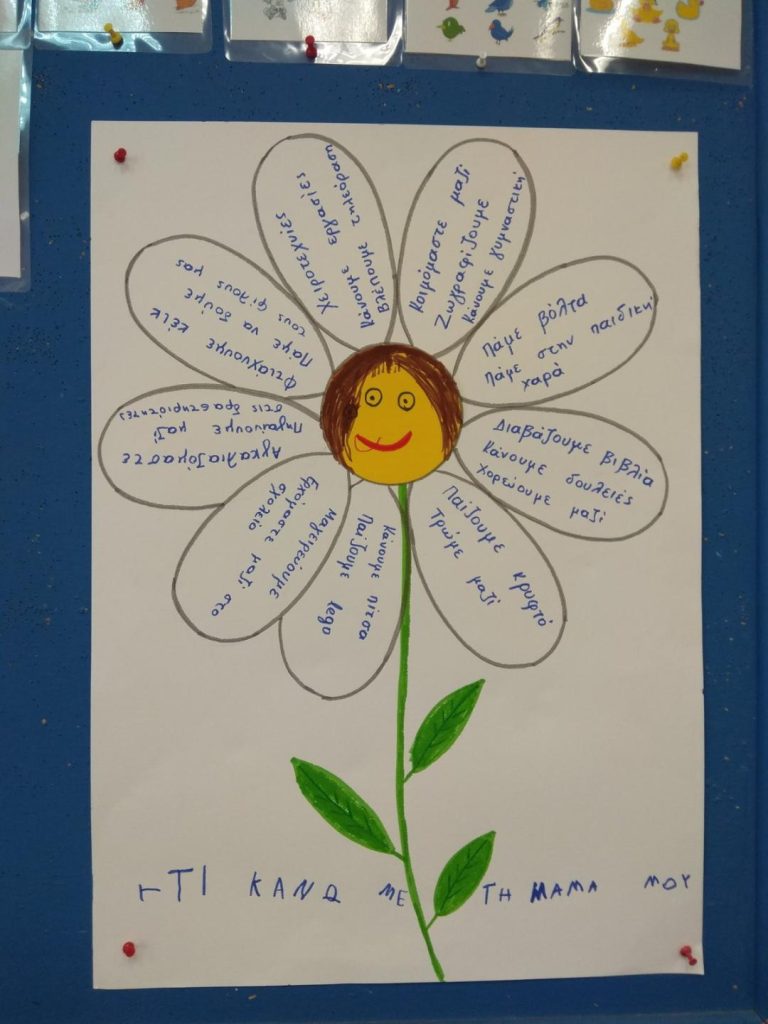 Χειροτεχνίες
Κάνουμε εργασίες
Βλέπουμε τηλεόραση
Κοιμόμαστε μαζί
Ζωγραφίζουμε
Κάνουμε γυμναστική
Πάμε βόλτα
Πάμε στην παιδική
χαρά
Διαβάζουμε βιβλία
Κάνουμε δουλειές
Χορεύουμε μαζί
Παίζουμε κρυφτό
Τρώμε μαζί
Κάνουμε πίτσα
Παίζουμε lego
Μαγειρεύουμε
Ερχόμαστε μαζί στο
σχολείο
Αγκαλιαζόμαστε
Πηγαίνουμε μαζί
στις δραστηριότητες
Φτιάχνουμε κέικ
Πάμε να δούμε
τους φίλους μας
ΤΙ ΚΑΝΩ ΜΕ ΤΗ ΜΑΜΑ ΜΟΥ